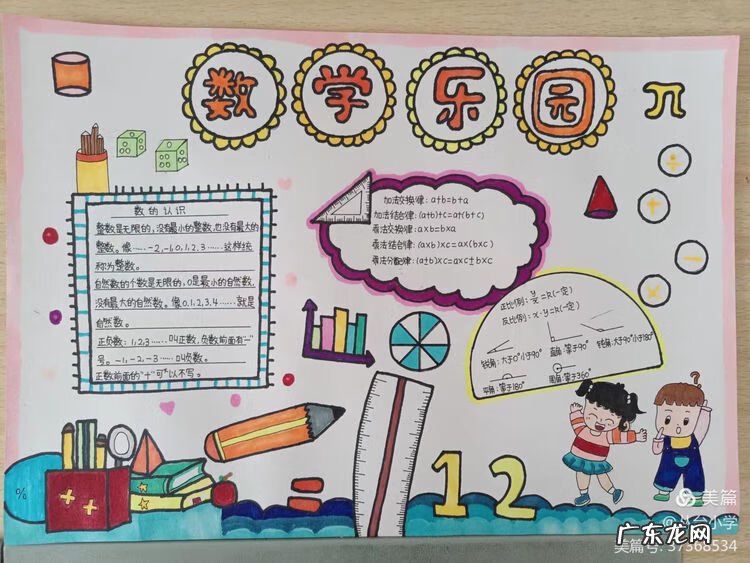 数学乐园
π
÷
+
-
×
数的认识
整数是无限的，没有最小的整数，也没有最大的
整数。像……-2，-1，0，1，2，3……这样统
称为整数。
自然数的个数是无限的，0是最小的自然数，
没有最大的自然数。像0，1，2，3，4……就是
自然数。
正负数：1，2，3……叫正数，负数前面有“-”
号。-1，-2，-3……叫负数。
正数前面的“+”可以不写。
加法交换律：a+b=b+a
加法结合律：(a+b)+c=a+(b+c)
乘法交换律：a×b=b×a
乘法结合律：(a×b)×c=a×(b×c)
乘法分配律：(a±b)×c=a×c±b×c
正比例：y/x=k(一定)
反比例：x·y=k(一定)
锐角：大于0°小于90°
直角：等于90°
钝角：大于90°小于180°
平角：等于180°
周角：等于360°
%
++
= 12
?
美篇
小学
广东龙网
美篇号：37368534